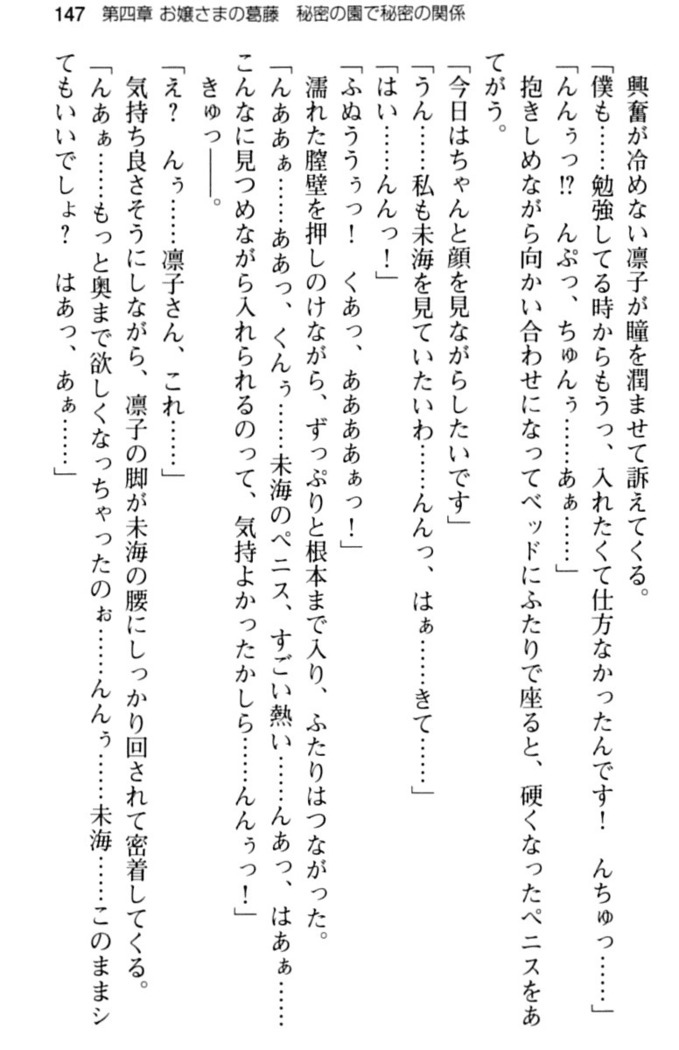 147 第四章 お嬢さまの葛藤 秘密の園で秘密の関係
興奮が冷めない凛子が瞳を潤ませて訴えてくる。
「僕も……勉強してる時からもうっ、入れたくて仕方なかったんです！ んちゅっ……」
「んんぅっ!? んぷっ、ちゅんぅ……あぁ……」
抱きしめながら向かい合わせになってベッドにふたりで座ると、硬くなったペニスをあ
てがう。
「今日はちゃんと顔を見ながらしたいです」
「うん……私も未海を見ていたいわ……んんっ、はぁ……きて……」
「はい……んんっ！」
「ふぬううぅっ！ くあっ、ああああぁっ！」
濡れた膣壁を押しのけながら、ずっぷりと根本まで入り、ふたりはつながった。
「んああぁ……ああっ、くんぅ……未海のペニス、すごい熱い……んあっ、はあぁ……
こんなに見つめながら入れられるのって、気持よかったかしら……んんぅっ！」
きゅっ――。
「え？ んぅ……凛子さん、これ……」
気持ち良さそうにしながら、凛子の脚が未海の腰にしっかり回されて密着してくる。
「んあぁ……もっと奥まで欲しくなっちゃったのぉ……んんぅ……未海……このままシ
てもいいでしょ？ はあっ、あぁ……」